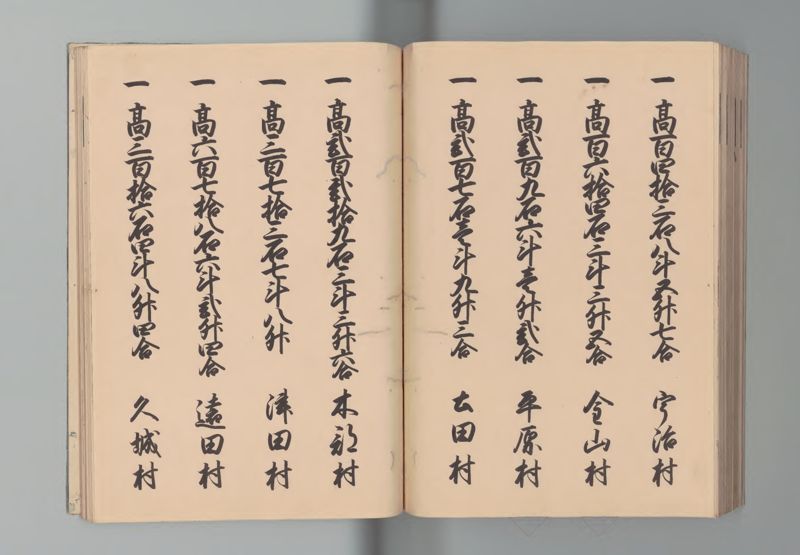 一高百四拾三石八斗五升七合 宇治村
一高百六拾四石三斗三升五合 金山村
一高弐百九石六斗壱升弐合 平原村
一高弐百七石壱斗九升三合 土田村
一高弐百弐拾九石三斗三升六合 木部村
一高三百七拾三石七斗八升 津田村
一高六百七拾八石六斗弐升四合 遠田村
一高三百拾六石四斗八升四合 久城村